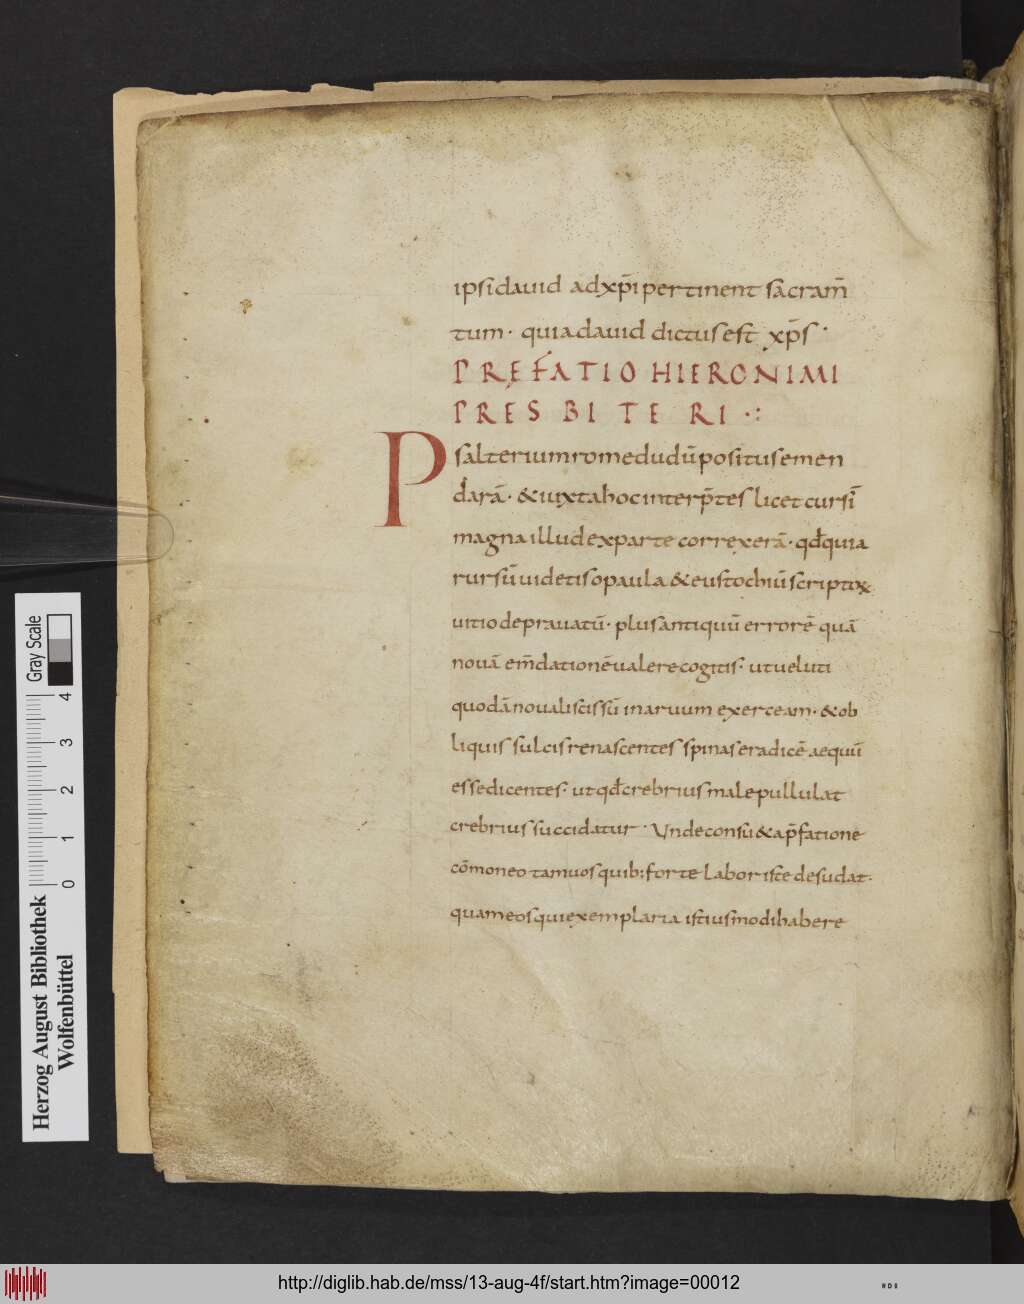 ipsi dauid ad xp̄i pertinent sacram̄
tum · quia dauid dictus est xp̄s ·
PREFATIO HIERONIMI
PRESBITERI ·:
Psalterium rome dudū positus emen
darā · & iuxta hoc interp̄tes licet cursī
magna illud ex parte correxerā · qđ quia
rursū uidetis o paula & eustochiū scriptoꝝ
uitio deprauatū · plus antiquū errorē quā
nouā em̄dationē ualere cogitis · ut ueluti
quodā noualis scissū in aruum exerceam · & ob
liquis sulcis renascentes spinas eradicē aequū
esse dicentes · ut qđ crebrius male pullulat
crebrius succidatur · Unde consu& a p̄fatione
cōmoneo tam uos quib: forte labor iste desudat ·
quam eos qui exemplaria istius modi habere
Herzog August Bibliothek
Wolfenbüttel
0 1 2 3 4
Gray Scale
http://diglib.hab.de/mss/13-aug-4f/start.htm?image=00012